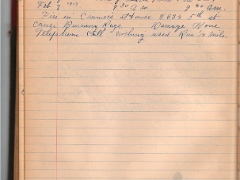 Feb 2 1917 9 30 A.M. 9 40 A.M.
Fire in Chinese House 868½ 5th St
Cause Burning Rags Damage None
Telephone Call Nothing used Run ¼ Mile.